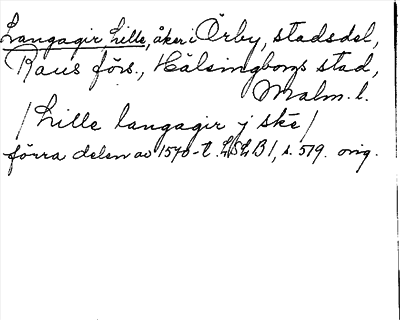 Langagir Lille, åker i Örby, stadsdel,
Raus förs., Hälsingborgs stad,
Malm. l.
/ Lille langagir j ske /
förra delen av 1570-t. LSLB 1, s. 579. orig.